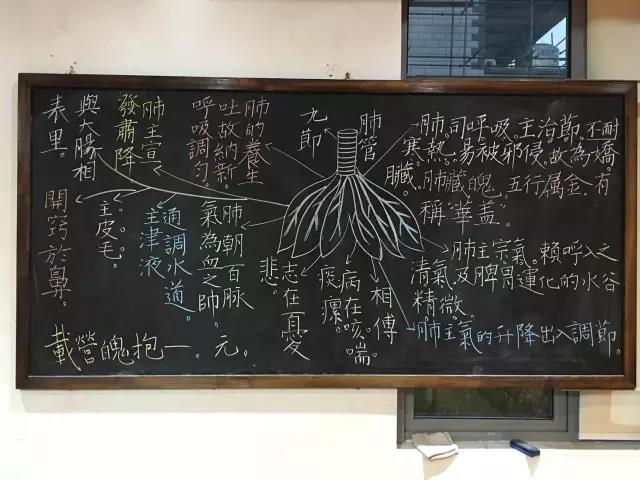 肺管
九節
肺。司呼吸。主治節。不耐
寒熱。易被邪侵。故為嬌
臟。肺藏魄。五行属金。有
稱"華蓋"。
肺主宗氣。賴呼入之
清氣。及脾胃運化的水谷
精微。
肺主氣的升降出入調節。
相傅
病在咳喘。
痰瘰。
志在憂
悲。
肺的養生
吐故納新。
呼吸調勻。
肺主宣
發肅降
與大腸相
表里。
肺朝百脉
氣為血之帥。
通調水道。
主津液
主皮毛。
開竅於鼻。
載營魄抱一。元。